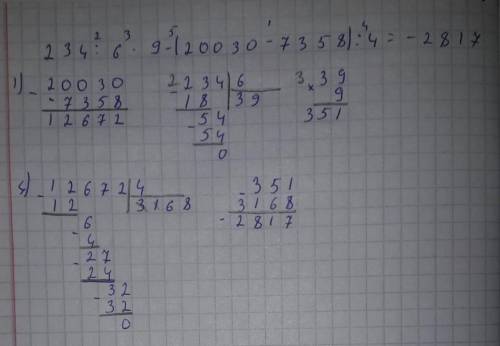 234 : 6 · 9 - (20030 - 7358) : 4 = - 2817
2 3 5 1 4
1) 20030 - 7358 12672
2 - 234 | 6 39 18 - 54 54 0
3 × 39 9 351
4) - 12672 | 4 3168 12 - 6 4 - 27 24 - 32 32 0
- 351 3168 - 2817